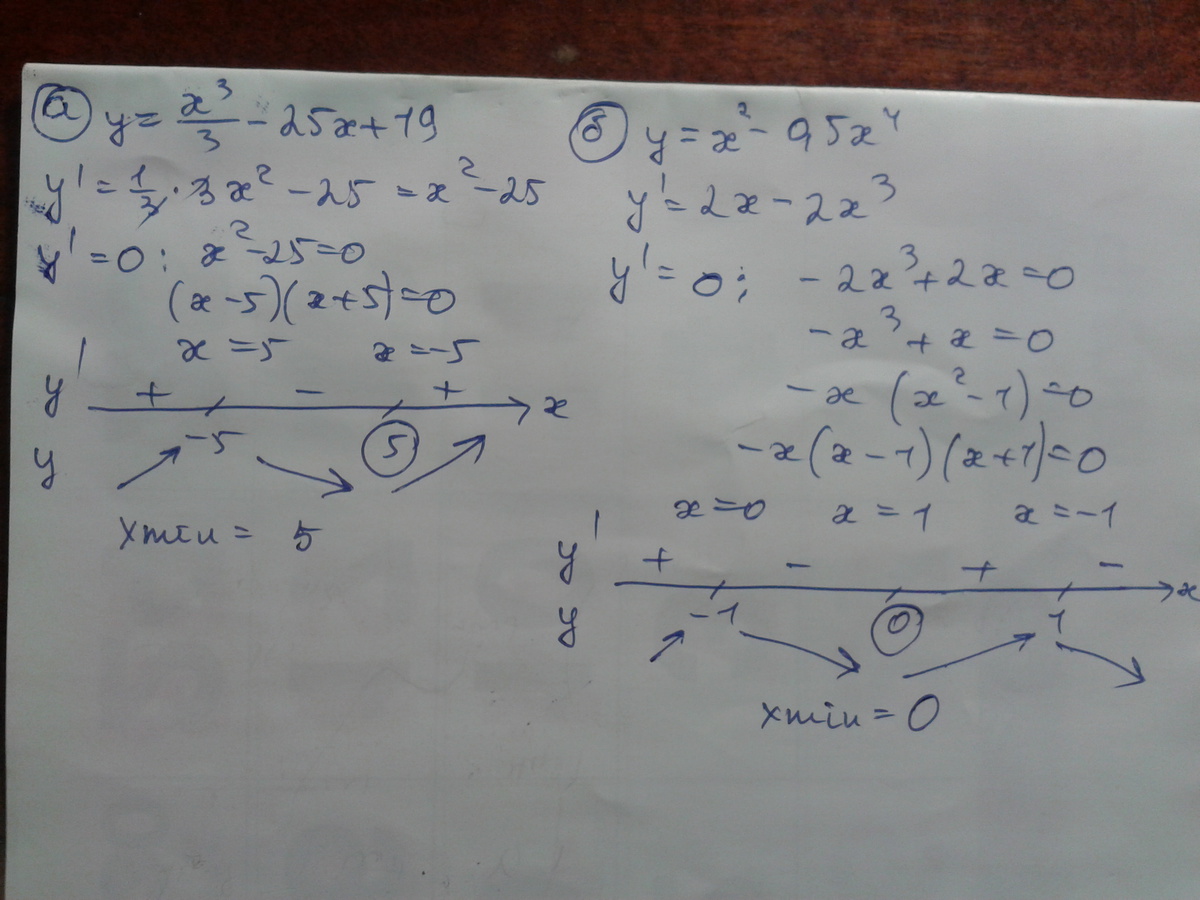 а y = x³/3 - 25x + 19
y' = 1/3 · 3x² - 25 = x² - 25
y' = 0 : x² - 25 = 0
(x - 5)(x + 5) = 0
x = 5 x = -5
y' + - + x
y -5 5
xmin = 5
б y = x² - 0,5x⁴
y' = 2x - 2x³
y' = 0 ; -2x³ + 2x = 0
-x³ + x = 0
-x (x² - 1) = 0
-x(x - 1)(x + 1) = 0
x = 0 x = 1 x = -1
y' + - + - x
y -1 0 1
xmin = 0